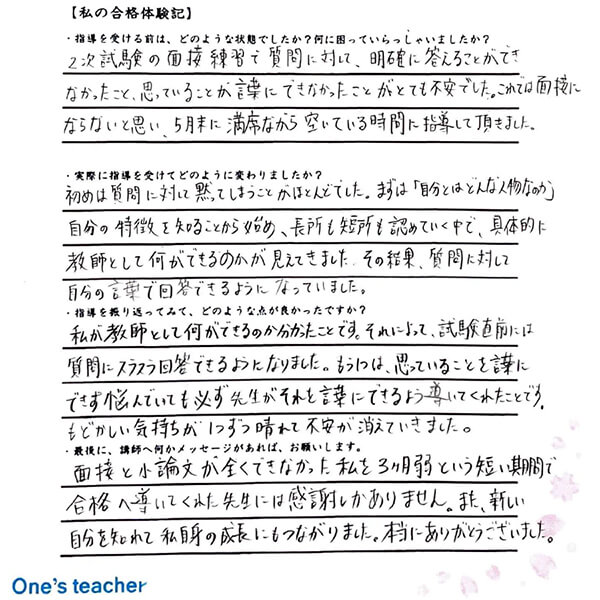 【私の合格体験記】
・指導を受ける前は、どのような状態でしたか？何に困っていらっしゃいましたか？
2次試験の面接練習で質問に対して、明確に答えることができ
なかったこと、思っていることが言葉にできなかったことがとても不安でした。これでは面接に
ならないと思い、5月末に満席ながら空いている時間に指導して頂きました。
・実際に指導を受けてどのように変わりましたか？
初めは質問に対して黙ってしまうことがほとんどでした。まずは「自分とはどんな人物なのか」
自分の特徴を知ることから始め、長所も短所も認めていく中で、具体的に
教師として何ができるのかが見えてきました。その結果、質問に対して
自分の言葉で回答できるようになっていました。
・指導を振り返ってみて、どのような点が良かったですか？
私が教師として何ができるのか分かったことです。それによって、試験直前には
質問にスラスラ回答できるようになりました。もう1つは、思っていることを言葉に
できず悩んでいても必ず先生がそれを言葉にできるよう導いてくれたことです。
もどかしい気持ちが1つずつ晴れて不安が消えていきました。
・最後に、講師へ何かメッセージがあれば、お願いします。
面接と小論文が全くできなかった私を3ヶ月弱という短い期間で
合格へ導いてくれた先生には感謝しかありません。また、新しい
自分を知れて私自身の成長にもつながりました。本当にありがとうございました。
One's teacher